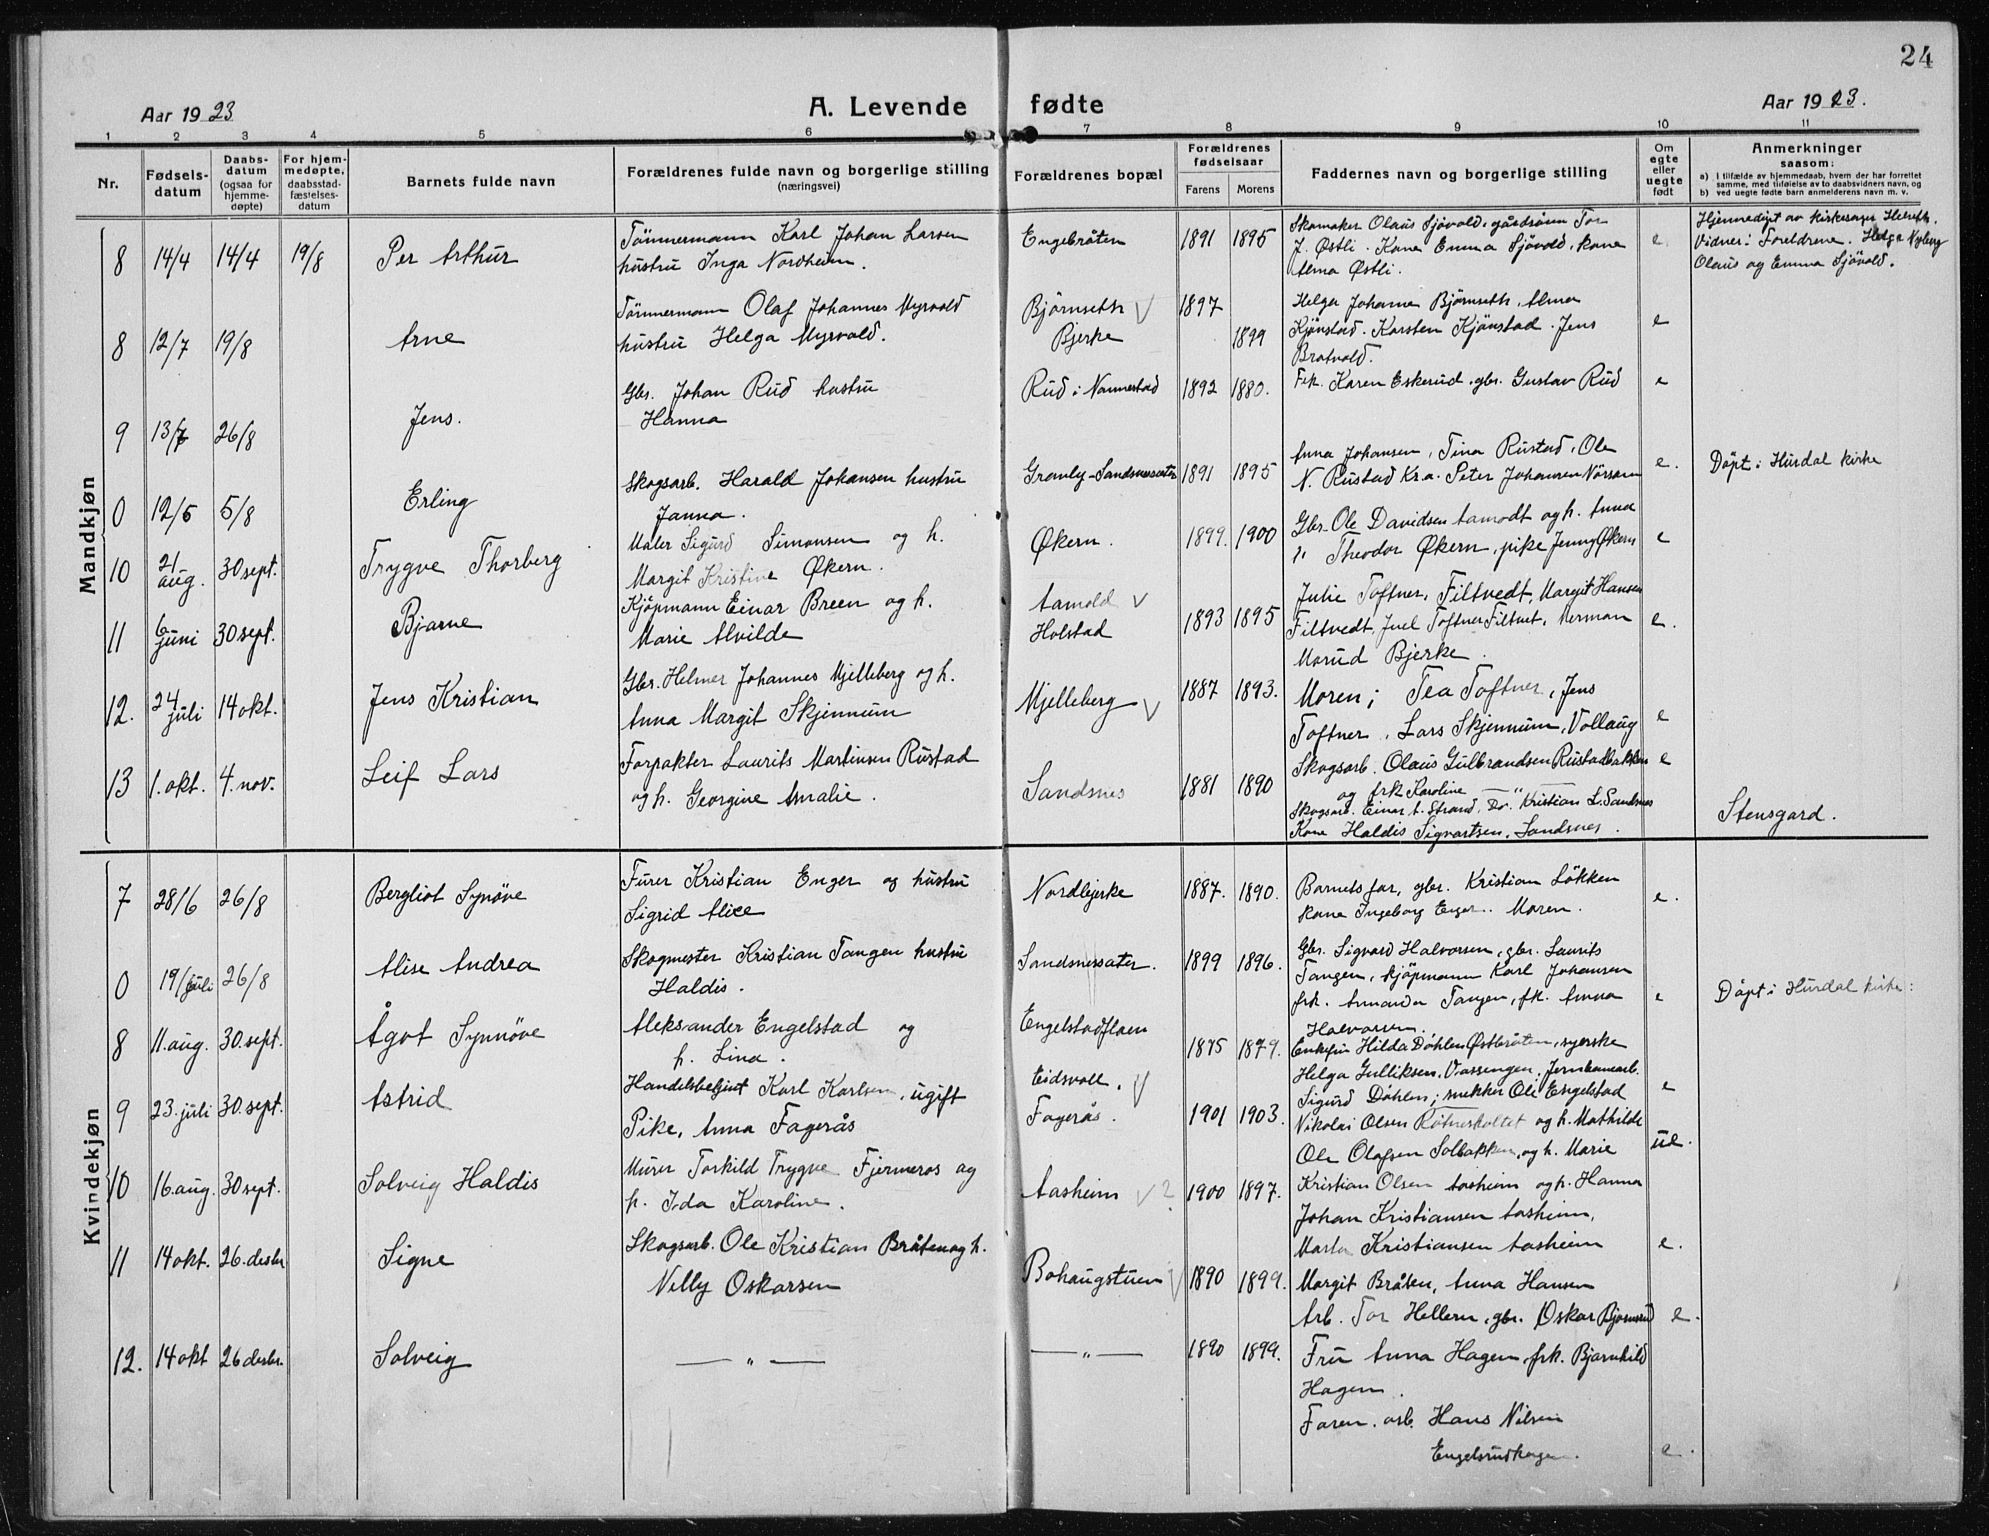 24
Aar 1923
A. Levende fødte
Aar 1923.
1 2 3 4 5 6 7 8 9 10 11
Nr.
Fødsels-
datum
Daabs-
datum
(ogsaa for
hjemme-
døpte)
For hjem-
medøpte,
daabsstad-
fæstelses-
datum
Barnets fulde navn
Forældrenes fulde navn og borgerlige stilling
(næringsvei)
Forældrenes bopæl
Forældrenes
fødselsaar
Farens Morens
Faddernes navn og borgerlige stilling
Om
egte
eller
uegte
født
Anmerkninger
saasom:
a) I tilfælde av hjemmedaab, hvem der har forrettet
samme, med tilføielse av to daabsvidners navn, og
b) ved uegte fødte barn anmelderens navn m. v.
Mandkjøn
8 14/4 14/4 19/8 Per Arthur
Tömmermann Karl Johan Larsen
hustru Inga Nordheim.
Engebråten
1891 1895
Skomaker Olaus Sjövold, gårdsråen Tor
J. Østli. Kone Emma Sjövold, kone
Alma Østli.
e.
Hjemmedöpt av kirkesanger
Vidner: Foreldrene. Helga Nyberg
Olaus og Emma Sjövold.
8 12/7 19/8 Arne
Tömmermann Olaf Johannes Myrvold
hustru Helga Myrvold.
Björnseth V
Bjerke
1897
1899
Helga Johanne Björnseth, Alma
Kjönstad. Karsten Kjönstad. Jens
Bratvold.
e
9 13/7 26/8 Jens.
Gbr. Johan Rud hustru
Hanna
Rud i Nannestad
1892 1880.
Frk. Karen Eskerud, gbr. Gustav Rud
e
0 12/5 5/8 Erling
Skogsarb. Harald Johansen hustru
Janna.
Granly-Sandsnessæter
1891 1895
Anna Johansen, Tina Rustad, Ole
N. Rustad Kr.a. Peter Johansen
e.
Döpt i Hurdal kirke
10 21 aug. 30 sept. Trygve Thorberg
Maler Sigurd Simonsen og h.
Margit Kristine Økern.
Økern.
1899. 1900
Gbr. Ole Davidsen Aamodt og h. Anna
" Theodor Økern, pike Jenny Økern
e
11 6 juni 30 sept. Bjarne
Kjöpmann Einar Breen og h.
Marie Alvilde
Aamold V
Holstad
1893 1895
Julie Toftner, Filtvedt, Margit Hansen
Filtvedt, Juel Toftner Filtvet, Herman
Morud Bjerke.
e.
12. 24 juli 14 okt. Jens Kristian
Gbr. Helmer Johannes Mjelleberg og h.
Anna Margit Skjennum
Mjelleberg V
1887 1893.
Moren; Tea Toftner, Jens
Toftner, Lars Skjennum, Vollaug
e
13 1. okt. 4. nov. Leif Lars
Forpakter Laurits Martinsen Rustad
og h. Georgine Amalie.
Sandsnes
1881 1890
Skogsarb. Olaus Gulbrandsen Rustadbakken
og frk Karoline — " —
Skogsarb. Einar A. Strand. Do. Kristian L. Sandsnes
Kone Haldis Sigvartsen, Sandsnes.
e
Stensgard.
Kvindekjøn
7 28/6 26/8 Bergliot Synöve
Furer Kristian Enger og hustru
Sigrid Alice
Nordbjerke
1887. 1890.
Barnets far, gbr. Kristian Lökken
kone Ingeborg Enger. Moren.
e.
0 19/juli 26/8 Alise Andrea
Skogmester Kristian Tangen hustru
Haldis.
Sandsnessæter.
1899 1896.
Gbr. Sigvard Halvorsen, gbr. Laurits
Tangen, kjöpmann Karl Johansen
frk. Amanda Tangen, frk. Anna
Halvorsen.
e
Döpt i Hurdal kirke:
8 11. aug. 30. sept. Ågot Synnöve
Aleksander Engelstad og
h. Lina.
Engelstadfloen
1875 1879.
Enkefru Hilda Döhlen Østbråten, syerske
Helga Gulliksen, Vassengen, Jernbanearb.
Sigurd Döhlen; snekker Ole Engelstad
e
9 23. juli 30. sept. Astrid
Handelsbetjent Karl Karlsen, ugift
Pike, Anna Fagerås
Eidsvoll. V
Fagerås.
1901 1903.
Nikolai Olsen Rötnesholtet og h. Mathilde
Ole Olafsen Solbakken, og h. Marie
ue.
10 16. aug. 30 sept. Solveig Haldis
Murer Torkild Trygve Fjermeros og
h. Ida Karoline.
Aasheim V?
1900 1897.
Kristian Olsen Aasheim og h. Hanna
Johan Kristiansen Aasheim,
Marta Kristiansen Aasheim
e.
11 14 okt. 26. desbr Signe
Skogsarb. Ole Kristian Bråten og h.
Nelly Oskarsen
Bohaugstuen V
1890 1899.
Margit Bråten, Anna Hansen
Arb. Tor Hellern, gbr. Oskar Bjørnsrud
e.
12. 14 okt 26 desbr. Solveig
— " —
— " —
1890 1899.
Fru Anna Hagen, frk. Bjarnhild
Hagen.
Faren. arb. Hans Nilsen
Engelsrudhagen.
e.